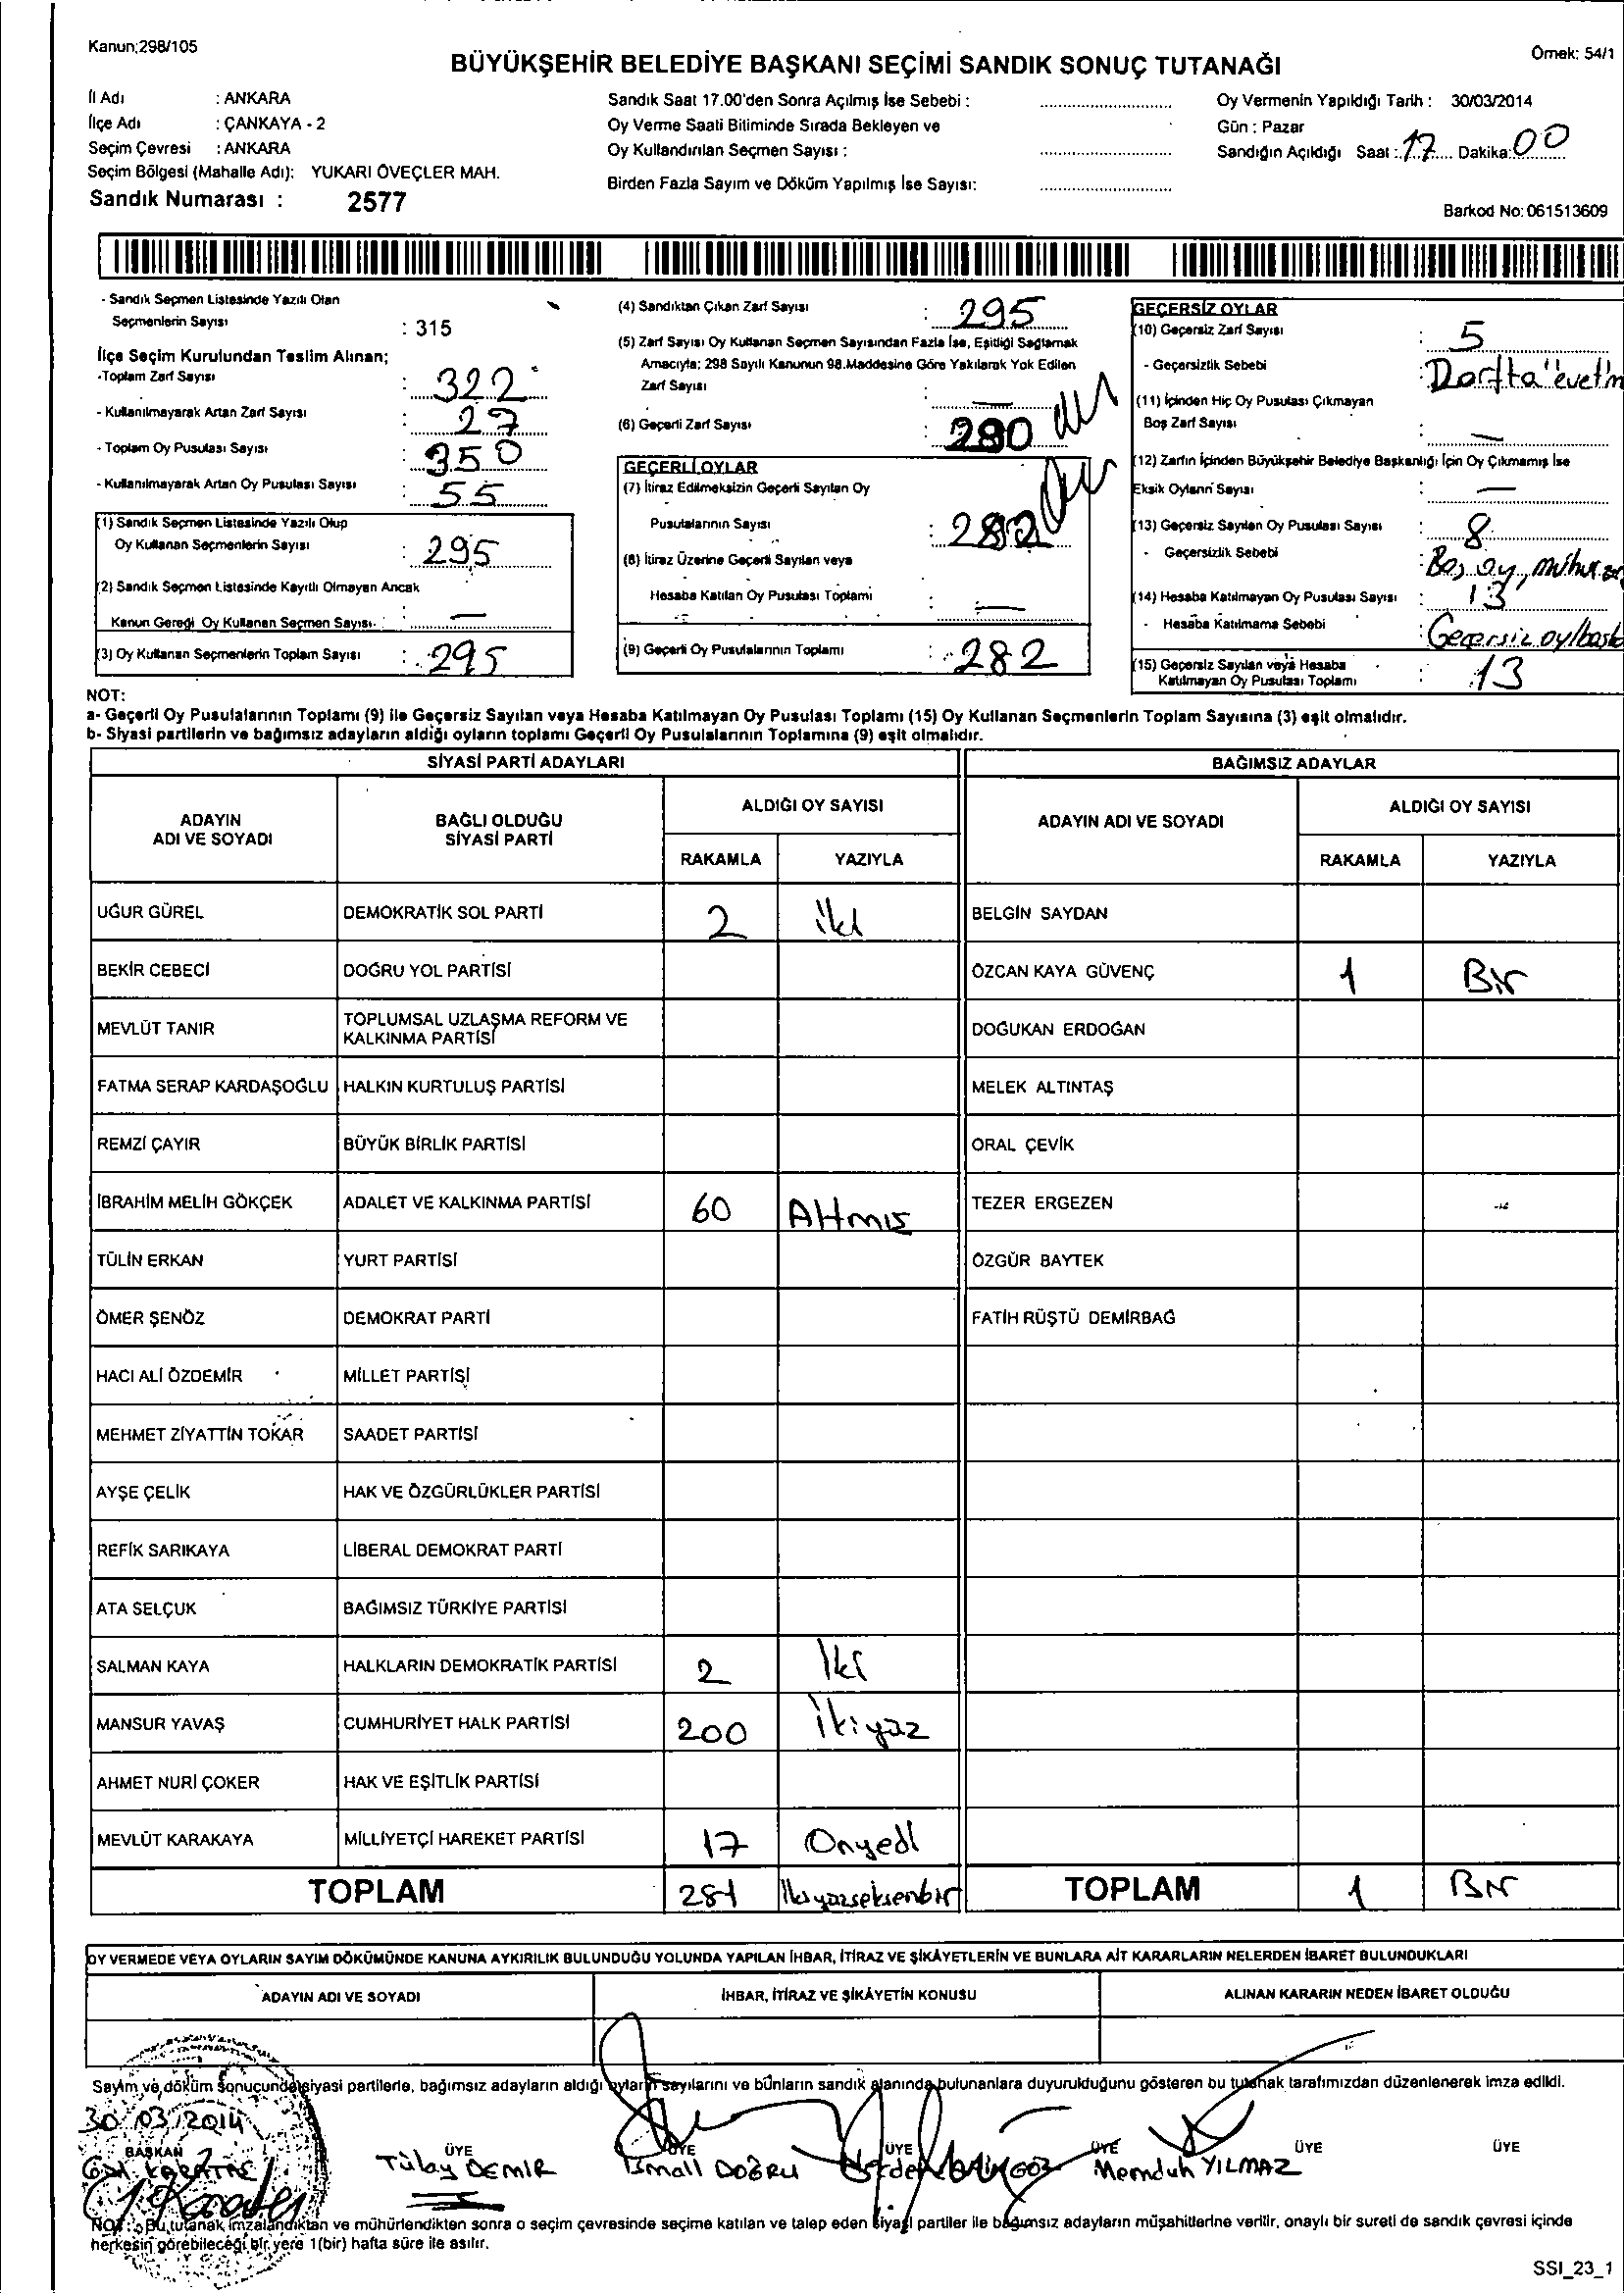 Kanun:298/105
Örnek: 54/1
BÜYÜKŞEHİR BELEDİYE BAŞKANI SEÇİMİ SANDIK SONUÇ TUTANAĞI
İl Adı : ANKARA
İlçe Adı : ÇANKAYA - 2
Seçim Çevresi : ANKARA
Seçim Bölgesi (Mahalle Adı): YUKARI ÖVEÇLER MAH.
Sandık Numarası : 2577
Sandık Saat 17.00'den Sonra Açılmış İse Sebebi :
Oy Verme Saati Bitiminde Sırada Bekleyen ve
Oy Kullandırılan Seçmen Sayısı :
Birden Fazla Sayım ve Döküm Yapılmış İse Sayısı:
Oy Vermenin Yapıldığı Tarih : 30/03/2014
Gün : Pazar
Sandığın Açıldığı Saat : 17 Dakika: 00
Barkod No: 061513609
- Sandık Seçmen Listesinde Yazılı Olan
Seçmenlerin Sayısı : 315
İlçe Seçim Kurulundan Teslim Alınan;
-Toplam Zarf Sayısı : 322
- Kullanılmayarak Artan Zarf Sayısı : 27
- Toplam Oy Pusulası Sayısı : 350
- Kullanılmayarak Artan Oy Pusulası Sayısı : 55
(1) Sandık Seçmen Listesinde Yazılı Olup
Oy Kullanan Seçmenlerin Sayısı : 295
(2) Sandık Seçmen Listesinde Kayıtlı Olmayan Ancak
Kanun Gereği Oy Kullanan Seçmen Sayısı : —
(3) Oy Kullanan Seçmenlerin Toplam Sayısı : 295
(4) Sandıktan Çıkan Zarf Sayısı : 295
(5) Zarf Sayısı Oy Kullanan Seçmen Sayısından Fazla İse, Eşitliği Sağlamak
Amacıyla; 298 Sayılı Kanunun 98.Maddesine Göre Yakılarak Yok Edilen
Zarf Sayısı : —
(6) Geçerli Zarf Sayısı : 290
GEÇERLİ OYLAR
(7) İtiraz Edilmeksizin Geçerli Sayılan Oy
Pusulalarının Sayısı : 282
(8) İtiraz Üzerine Geçerli Sayılan veya
Hesaba Katılan Oy Pusulası Toplamı : —
(9) Geçerli Oy Pusulalarının Toplamı : 282
GEÇERSİZ OYLAR
(10) Geçersiz Zarf Sayısı : 5
- Geçersizlik Sebebi :
(11) İçinden Hiç Oy Pusulası Çıkmayan
Boş Zarf Sayısı : —
(12) Zarfın İçinden Büyükşehir Belediye Başkanlığı İçin Oy Çıkmamış İse
Eksik Oyların Sayısı : —
(13) Geçersiz Sayılan Oy Pusulası Sayısı : 8
- Geçersizlik Sebebi : Boş oy,
(14) Hesaba Katılmayan Oy Pusulası Sayısı : 13
- Hesaba Katılmama Sebebi : Geçersiz oy/
(15) Geçersiz Sayılan veya Hesaba
Katılmayan Oy Pusulası Toplamı : 13
NOT:
a- Geçerli Oy Pusulalarının Toplamı (9) ile Geçersiz Sayılan veya Hesaba Katılmayan Oy Pusulası Toplamı (15) Oy Kullanan Seçmenlerin Toplam Sayısına (3) eşit olmalıdır.
b- Siyasi partilerin ve bağımsız adayların aldığı oyların toplamı Geçerli Oy Pusulalarının Toplamına (9) eşit olmalıdır.
SİYASİ PARTİ ADAYLARI
BAĞIMSIZ ADAYLAR
ADAYIN ADI VE SOYADI
BAĞLI OLDUĞU SİYASİ PARTİ
ALDIĞI OY SAYISI
RAKAMLA YAZIYLA
ADAYIN ADI VE SOYADI
ALDIĞI OY SAYISI
RAKAMLA YAZIYLA
UĞUR GÜREL DEMOKRATİK SOL PARTİ 2 iki BELGİN SAYDAN
BEKİR CEBECİ DOĞRU YOL PARTİSİ ÖZCAN KAYA GÜVENÇ 1 Bir
MEVLÜT TANIR TOPLUMSAL UZLAŞMA REFORM VE KALKINMA PARTİSİ DOĞUKAN ERDOĞAN
FATMA SERAP KARDAŞOĞLU HALKIN KURTULUŞ PARTİSİ MELEK ALTINTAŞ
REMZİ ÇAYIR BÜYÜK BİRLİK PARTİSİ ORAL ÇEVİK
İBRAHİM MELİH GÖKÇEK ADALET VE KALKINMA PARTİSİ 60 Altmış TEZER ERGEZEN
TÜLİN ERKAN YURT PARTİSİ ÖZGÜR BAYTEK
ÖMER ŞENÖZ DEMOKRAT PARTİ FATİH RÜŞTÜ DEMİRBAĞ
HACI ALİ ÖZDEMİR MİLLET PARTİSİ
MEHMET ZİYATTİN TOKAR SAADET PARTİSİ
AYŞE ÇELİK HAK VE ÖZGÜRLÜKLER PARTİSİ
REFİK SARIKAYA LİBERAL DEMOKRAT PARTİ
ATA SELÇUK BAĞIMSIZ TÜRKİYE PARTİSİ
SALMAN KAYA HALKLARIN DEMOKRATİK PARTİSİ 2 İki
MANSUR YAVAŞ CUMHURİYET HALK PARTİSİ 200 İkiyüz
AHMET NURİ ÇOKER HAK VE EŞİTLİK PARTİSİ
MEVLÜT KARAKAYA MİLLİYETÇİ HAREKET PARTİSİ 17 Onyedi
TOPLAM 281 İkiyüzseksenbir TOPLAM 1 Bir
OY VERMEDE VEYA OYLARIN SAYIM DÖKÜMÜNDE KANUNA AYKIRILIK BULUNDUĞU YOLUNDA YAPILAN İHBAR, İTİRAZ VE ŞİKÂYETLERİN VE BUNLARA AİT KARARLARIN NELERDEN İBARET BULUNDUKLARI
ADAYIN ADI VE SOYADI İHBAR, İTİRAZ VE ŞİKÂYETİN KONUSU ALINAN KARARIN NEDEN İBARET OLDUĞU
Sayım ve döküm sonucunda siyasi partilerle, bağımsız adayların aldığı oyların sayılarını ve bunların sandık alanında bulunanlara duyurulduğunu gösteren bu tutanak tarafımızdan düzenlenerek imza edildi.
30/03/2014
BAŞKAN ÜYE ÜYE ÜYE ÜYE ÜYE ÜYE
Tülay DEMİR İsmail DOĞRU Memduh YILMAZ
NOT: Bu tutanak imzalandıktan ve mühürlendikten sonra o seçim çevresinde seçime katılan ve talep eden siyasi partiler ile bağımsız adayların müşahitlerine verilir, onaylı bir sureti de sandık çevresi içinde
herkesin görebileceği bir yere 1(bir) hafta süre ile asılır.
SSI_23_1